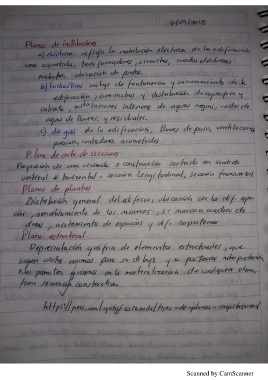 6/09/2018
Planos de instalaciones
a) eléctricas refleja la instalación eléctrica de la edificación
acometidas, transformadores, circuitos, cuadros eléctricos
ubicación de puntos.
b) hidráulicas incluye de fontanería y saneamiento de la
edificación, suministro y distribución de agua fría y
instalaciones internas de aguas negras, redes de
agua de lluvias y residuales.
c) de gas de la edificación, llaves de paso, ventilaciones
presión, contadores, acometidas
Plano de corte de secciones
Proyección de una vivienda o construcción cortado en sentido
vertical o horizontal. sección longitudinal, sección transversal
Planos de plantas
Distribución general del edificio, ubicación de las dif.
de los mismos, se marcan anchos de
áreas, de espacios y dif.
Plano estructural
Representación gráfica de elementos estructurales, que
siguen ciertos normas para su dibujo y su posterior interpretación
Nos permiten guiarnos en la materialización de cualquier obra,
constructivo.
Scanned by CamScanner